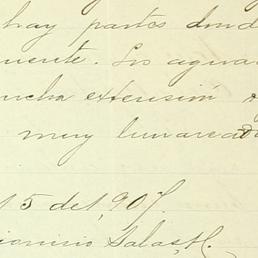 hay partes dond
uente. Los agua
ucha extensión
muy lunaread
5 del, 907.
ionisio Salas, H.